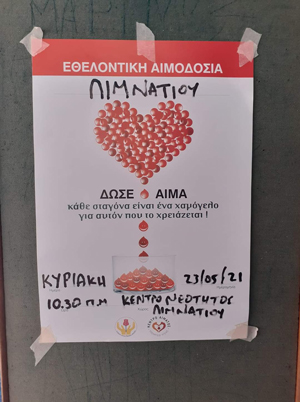 ΕΘΕΛΟΝΤΙΚΗ ΑΙΜΟΔΟΣΙΑ
ΛΙΜΝΑΤΙΟΥ
ΔΩΣΕ ΑΙΜΑ
κάθε σταγόνα είναι ένα χαμόγελο
για αυτόν που το χρειάζεται !
ΚΥΡΙΑΚΗ 23/05/21
10.30 Π.Μ ΚΕΝΤΡΟ ΝΕΟΤΗΤΟΣ
ΛΙΜΝΑΤΙΟΥ